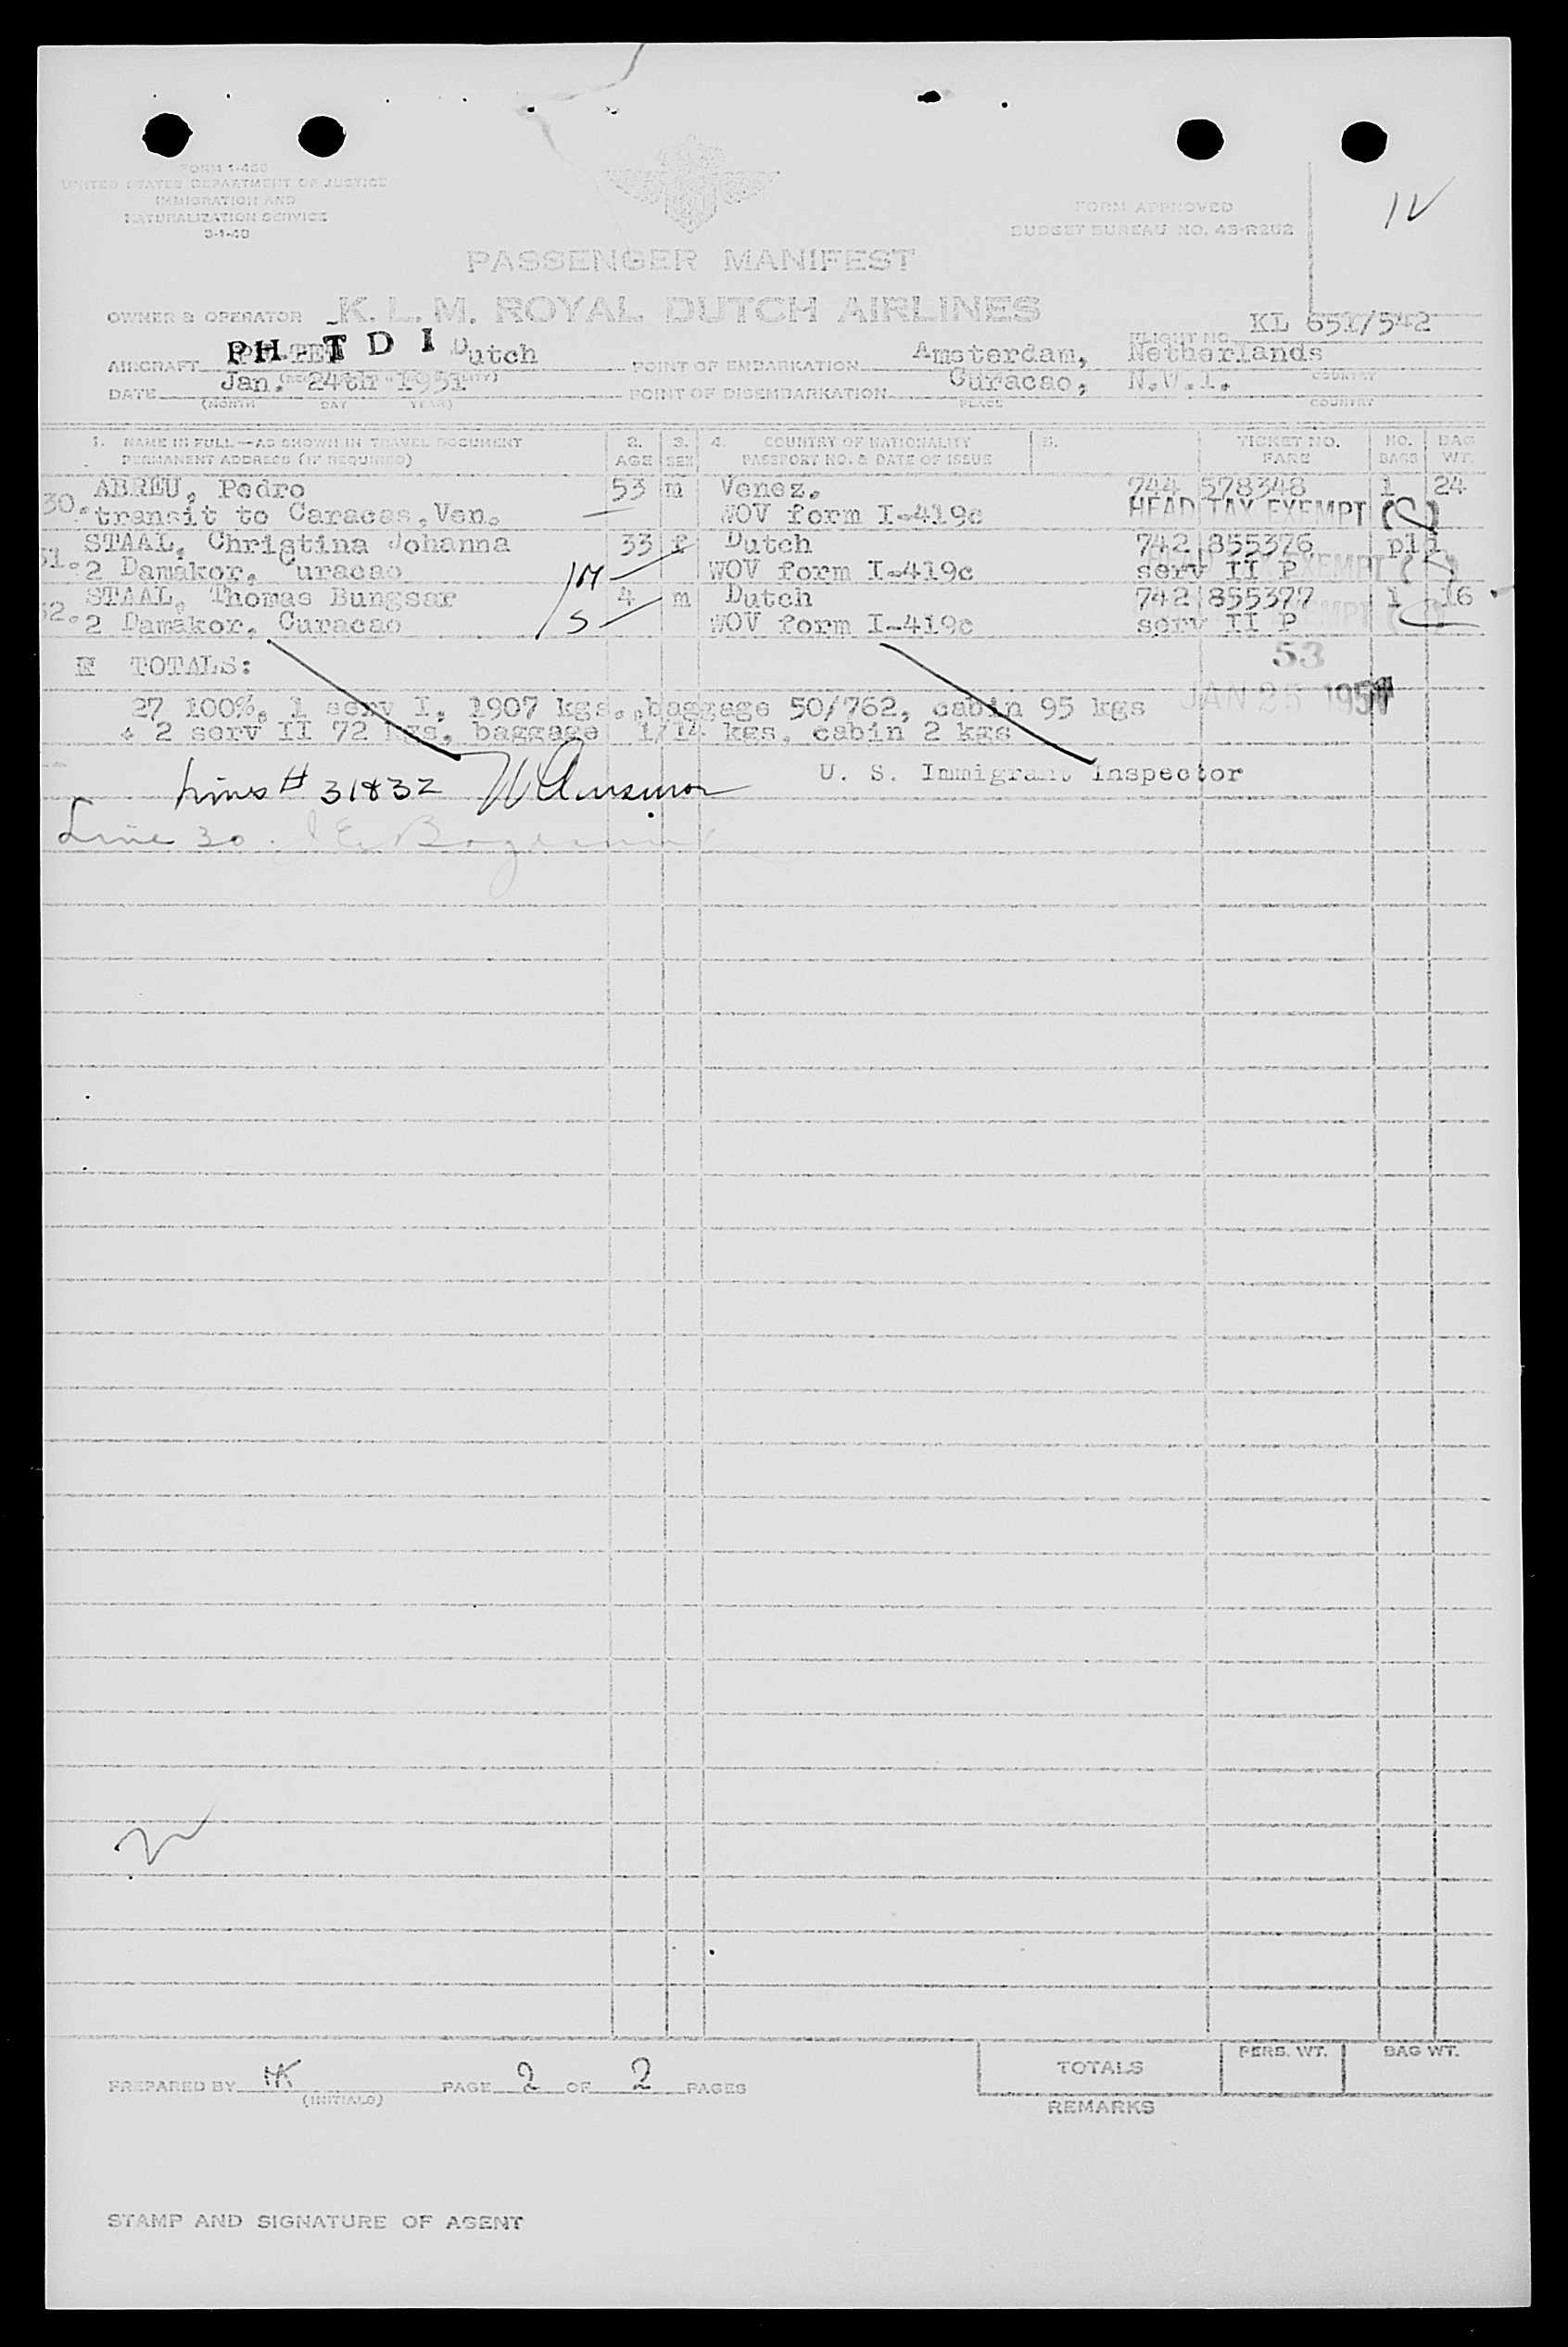 FORM I-466
UNITED STATES DEPARTMENT OF JUSTICE
IMMIGRATION AND
NATURALIZATION SERVICE
FORM APPROVED
BUDGET BUREAU NO. 43-R252
PASSENGER MANIFEST
OWNER & OPERATOR K. L. M. ROYAL DUTCH AIRLINES
FLIGHT NO. KL 651/542
AIRCRAFT PH - T D I Dutch POINT OF EMBARKATION Amsterdam, Netherlands
COUNTRY
DATE Jan. 24th 1951 POINT OF DISEMBARKATION Curacao, N.W.I.
(MONTH DAY YEAR) PLACE COUNTRY
1. NAME IN FULL—AS SHOWN IN TRAVEL DOCUMENT 2. 3. 4. COUNTRY OF NATIONALITY 5. TICKET NO. NO. BAG
PERMANENT ADDRESS (IF REQUIRED) AGE SEX PASSPORT NO. & DATE OF ISSUE FARE BAGS WT.
30. ABREU, Pedro 53 m Venez. 744 578348 1 24
transit to Caracas, Ven. WOV form I-419c HEAD TAX EXEMPT
31. STAAL, Christina Johanna 33 f Dutch 742 855376
2 Damakor, Curacao M WOV form I-419c serv II P
32. STAAL, Thomas Bungsar 4 m Dutch 742 855377 1 16
2 Damakor, Curacao S WOV form I-419c serv II P
TOTALS: 53
27 100%, 1 serv I, 1907 kgs., baggage 50/762, cabin 95 kgs JAN 25 1951
+ 2 serv II 72 kgs, baggage 1/14 kgs, cabin 2 kgs
U. S. Immigrant Inspector
Lines # 31&32
Line 30.
PREPARED BY HK PAGE 2 OF 2 PAGES
(INITIALS)
TOTALS PERS. WT. BAG WT.
REMARKS
STAMP AND SIGNATURE OF AGENT